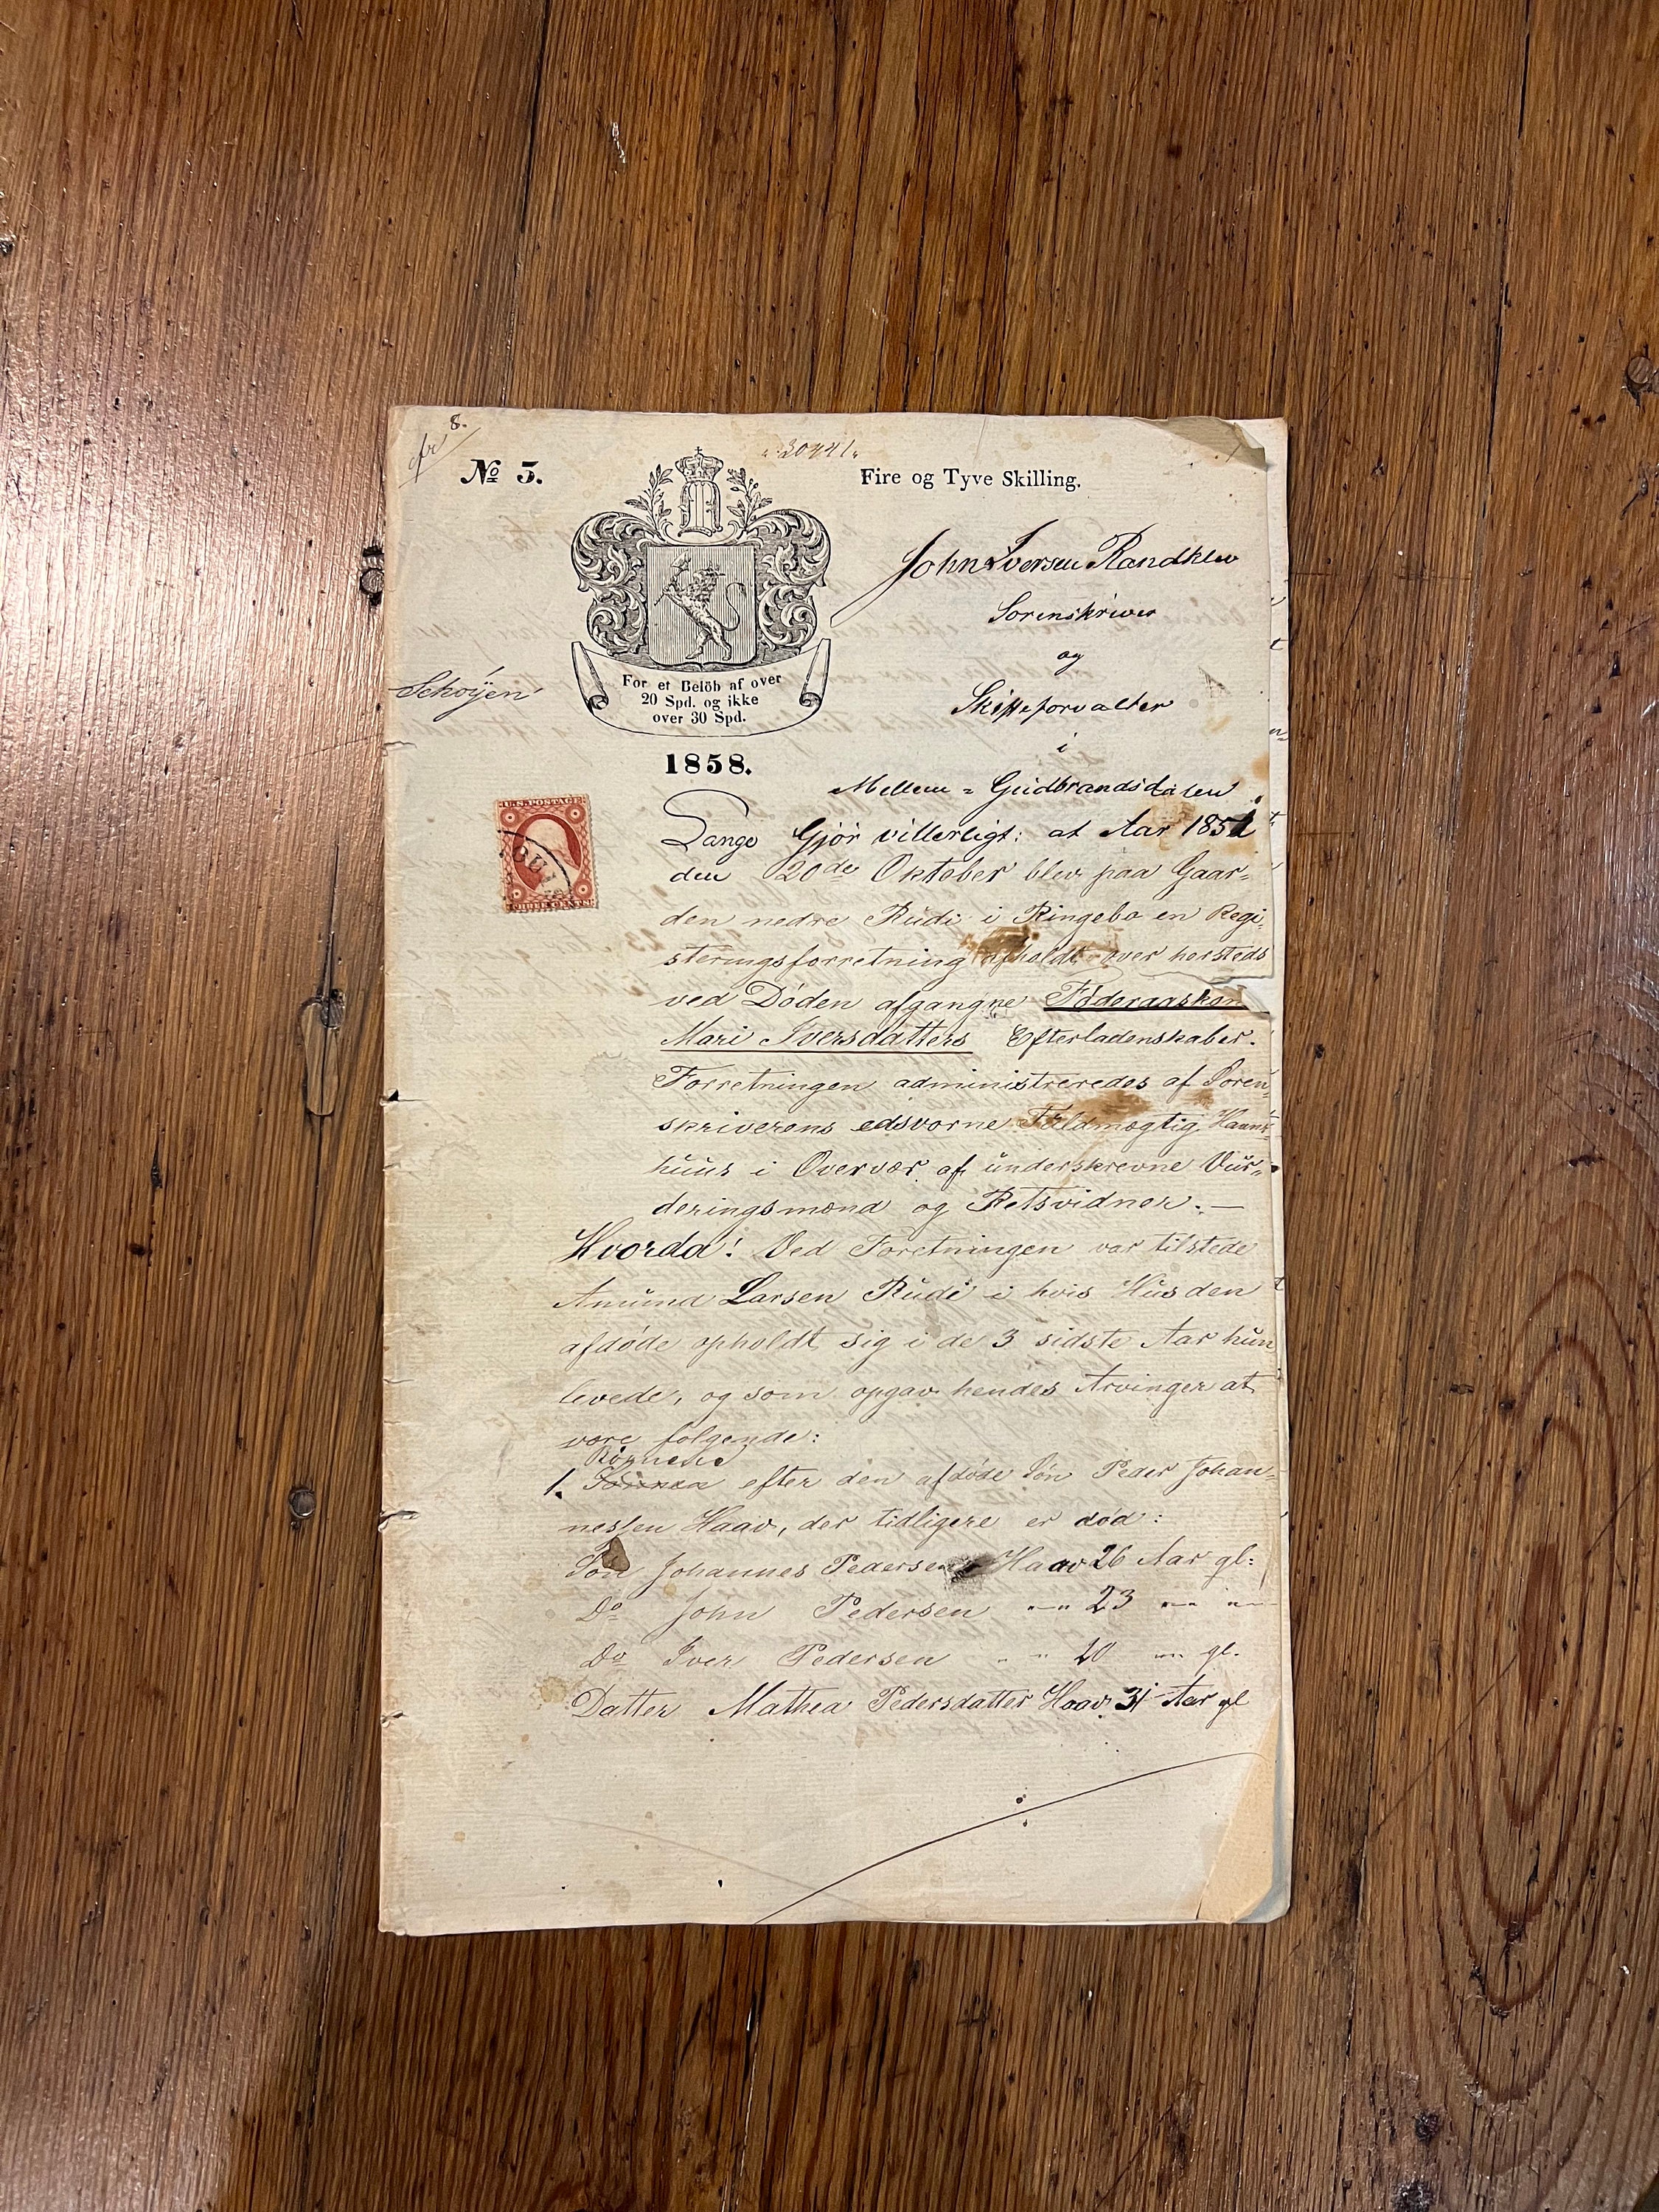 8.
No 5.
"30441"
Fire og Tyve Skilling.
For et Belöb af over
20 Spd. og ikke
over 30 Spd.
1858.
Schøyen
U.S. POSTAGE
THREE CENTS
John Iversen Randklev
Sorenskriver
og
Skifteforvalter
i
Mellem = Gudbrandsdalen
Gjör vitterligt: at Aar 185
den 20de Oktober blev paa Gaar-
den nedre Rudi i Ringebo en Regi-
steringsforretning afholdt over hersteds
ved Döden afgangne Föderaadskon
Mari Iversdatters Efterladenskaber.
Forretningen administreredes af Soren-
skriverens edsvorne Fuldmægtig
huus i Overvær af underskrevne Vur-
deringsmænd og Retsvidner. —
Hvorda! Ved Foretningen var tilstede
Amund Larsen Rudi i hvis Hus den
afdöde opholdt sig i de 3 sidste Aar hun
levede, og som opgav hendes Arvinger at
være fölgende:
Börnene
1. efter den afdöde Sön Peder Johan-
nessen Haav, der tidligere er död:
Sön Johannes Pedersen Haav 26 Aar gl:
Do John Pedersen —"— 23 —"— —"—
Do Iver Pedersen " " 20 —"— gl.
Datter Mathea Pedersdatter Haav 31 Aar gl